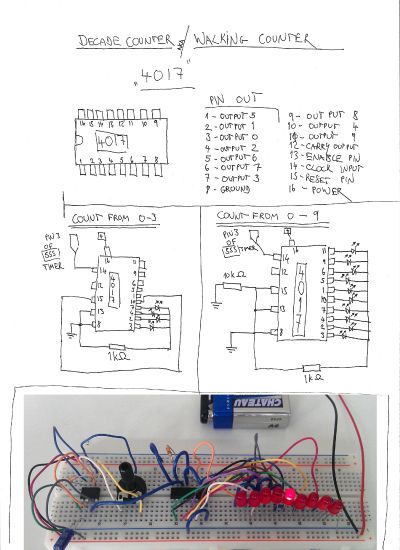 DECADE COUNTER / WALKING COUNTER
"4017"
PIN OUT
16 15 14 13 12 11 10 9
4017
1 2 3 4 5 6 7 8
1 - OUTPUT 5
2 - OUTPUT 1
3 - OUTPUT 0
4 - OUTPUT 2
5 - OUTPUT 6
6 - OUTPUT 7
7 - OUTPUT 3
8 - GROUND
9 - OUTPUT 8
10 - OUTPUT 4
11 - OUTPUT 9
12 - CARRY OUTPUT
13 - ENABLE PIN
14 - CLOCK INPUT
15 - RESET PIN
16 - POWER
COUNT FROM 0-3
PIN 3
OF
555
TIMER
+
16
14
12
15
13
8
4017
11
9
6
5
1
10
7
4
2
3
1kΩ
COUNT FROM 0 - 9
PIN3
OF
555
TIMER
+
16
14
12
15
13
8
10kΩ
4017
11
9
6
5
1
10
7
4
2
3
1kΩ
CHATEAU
9V